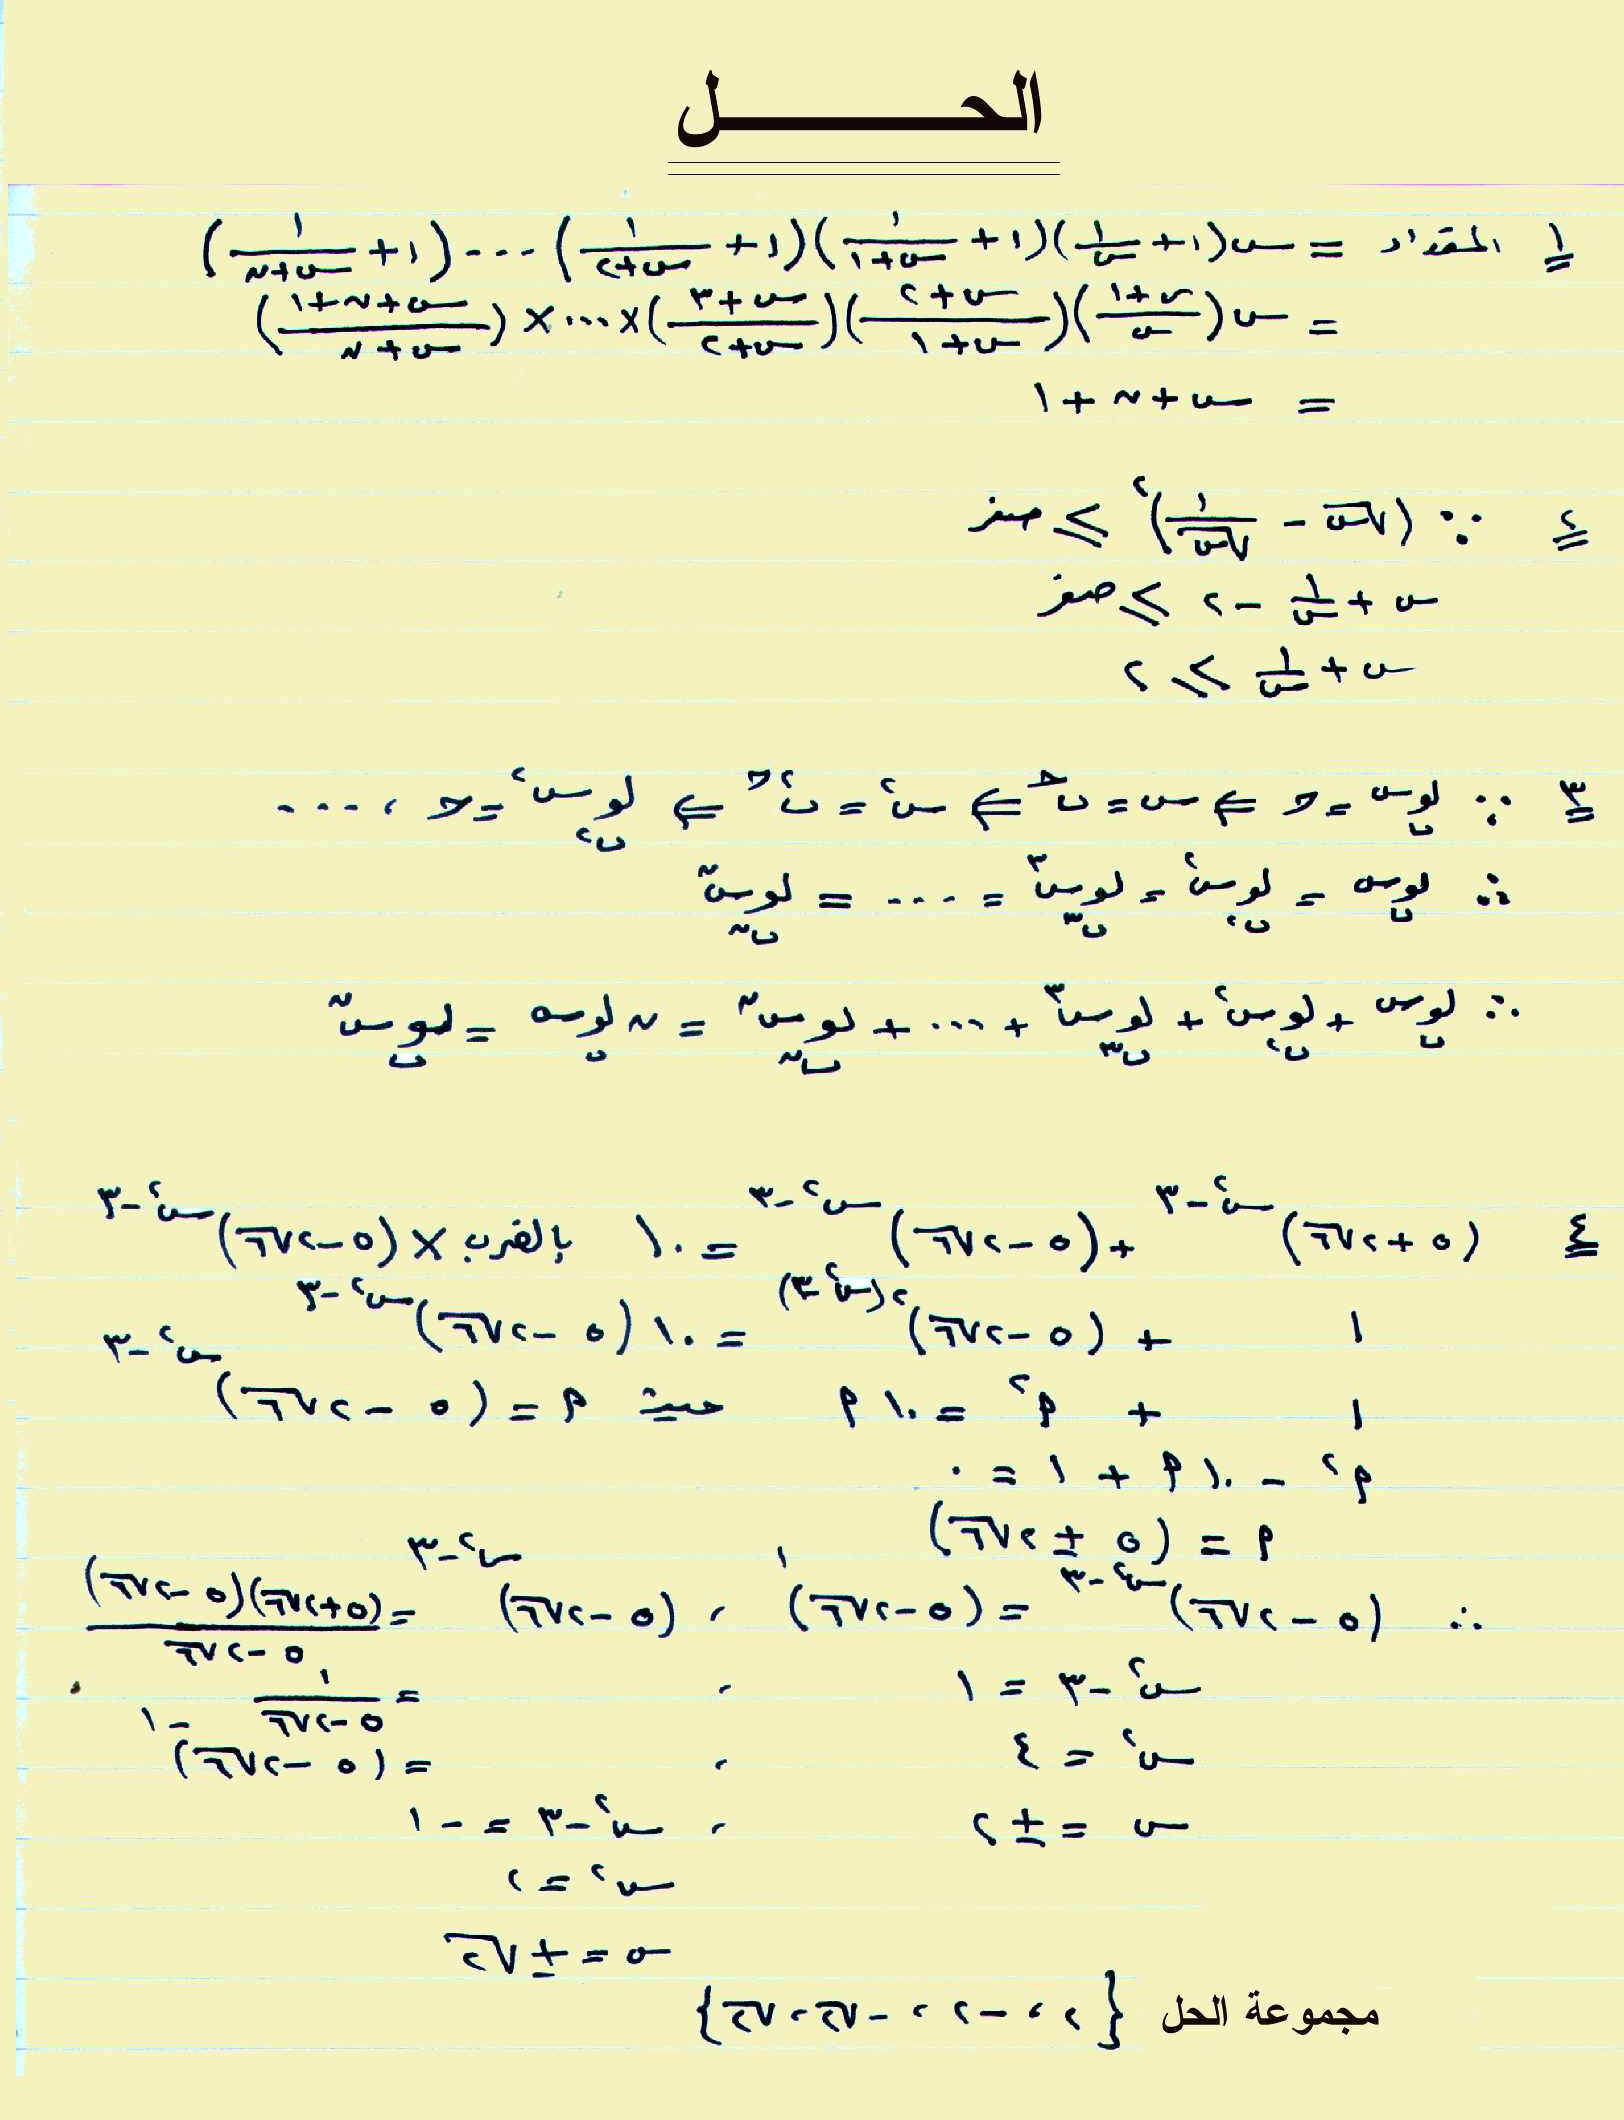 الحـــــــل
١ المقدار = س(١ + ١/س)(١ + ١/(س+١))(١ + ١/(س+٢)) ... (١ + ١/(س+ن))
= س((س+١)/س)((س+٢)/(س+١))((س+٣)/(س+٢)) × ... × ((س+ن+١)/(س+ن))
= س + ن + ١
٢ ∵ (√س − ١/√س)² ≥ صفر
س + ١/س − ٢ ≥ صفر
س + ١/س ≥ ٢
٣ ∵ لو_ب س = ح ⇐ س = ب^ح ⇐ س² = ب^٢ح ⇐ لو_ب² س² = ح ، ...
∴ لو_ب س = لو_ب² س² = لو_ب³ س³ = ... = لو_بⁿ سⁿ
∴ لو_ب س + لو_ب² س² + لو_ب³ س³ + ... + لو_بⁿ سⁿ = ن لو_ب س = لو_ب سⁿ
٤ (٥ + ٢√٦)^(س² − ٣) + (٥ − ٢√٦)^(س² − ٣) = ١٠ بالضرب × (٥ − ٢√٦)^(س² − ٣)
١ + (٥ − ٢√٦)^٢(س² − ٣) = ١٠ (٥ − ٢√٦)^(س² − ٣)
١ + م² = ١٠ م حيث م = (٥ − ٢√٦)^(س² − ٣)
م² − ١٠ م + ١ = ٠
م = (٥ ± ٢√٦)
∴ (٥ − ٢√٦)^(س² − ٣) = (٥ − ٢√٦)^١ ، (٥ − ٢√٦)^(س² − ٣) = (٥ + ٢√٦)(٥ − ٢√٦)/(٥ − ٢√٦)
س² − ٣ = ١ ، = ١/(٥ − ٢√٦)
س² = ٤ ، = (٥ − ٢√٦)^−١
س = ± ٢ ، س² − ٣ = −١
س² = ٢
س = ± √٢
مجموعة الحل {٢ ، −٢ ، −√٢ ، √٢}